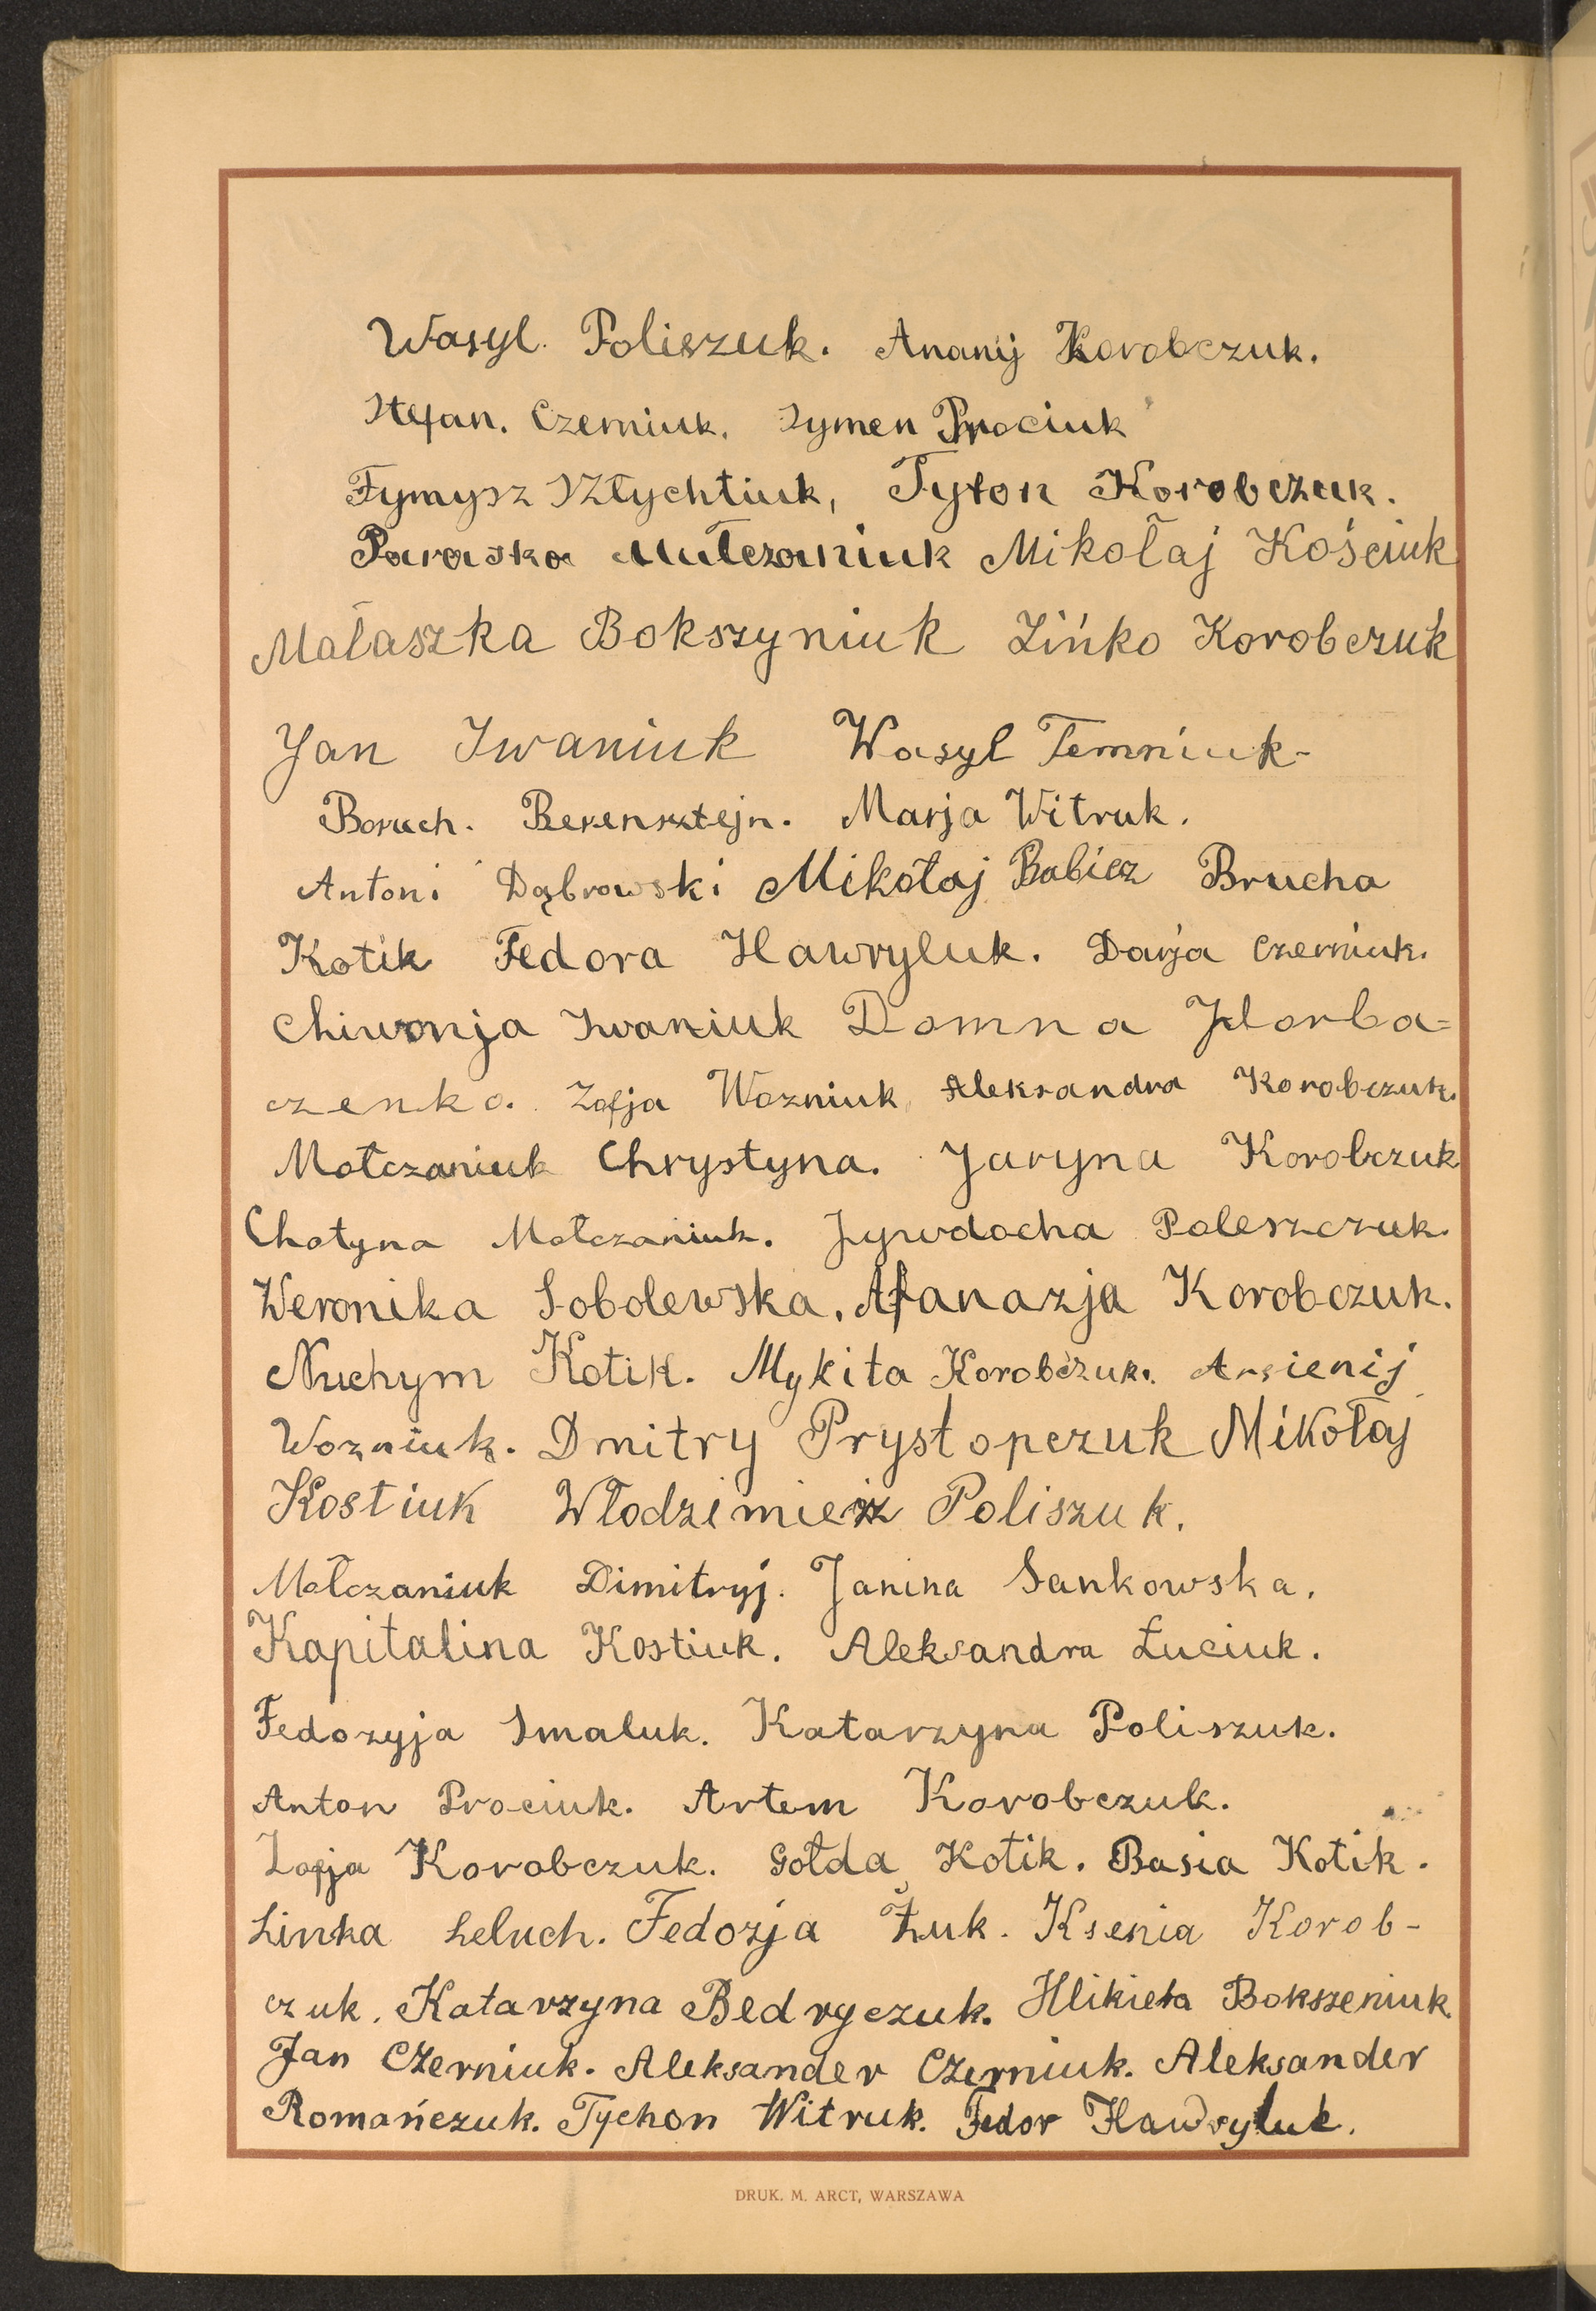 Wasyl. Poliszuk. Ananij Korobczuk.
Stefan. Czerniuk. Symen Prociuk
Tymysz Sztychtiuk, Tyton Korobczuk.
Paraska Mułczaniuk Mikołaj Kościuk
Małaszka Bokszyniuk Zińko Korobczuk
Jan Iwaniuk Wasyl Temniuk-
Boruch. Berensztejn. Marja Witruk.
Antoni Dąbrowski Mikołaj Babicz Brucha
Kotik Fedora Hawryluk. Darja Czerniuk.
Chiwonja Iwaniuk Domna Horba=
czenko. Zofja Wozniuk, Aleksandra Korobczuk.
Mołczaniuk Chrystyna. Jaryna Korobczuk
Chotyna Mołczaniuk. Jywdocha Poleszczuk.
Weronika Sobolewska. Afanazja Korobczuk.
Nuchym Kotik. Mykita Korobczuk. Arsienij
Wozniuk. Dmitry Prystopczuk Mikołaj
Kostiuk Włodzimierz Poliszuk.
Mołczaniuk Dimitryj. Janina Sankowska.
Kapitalina Kostiuk. Aleksandra Łuciuk.
Fedozyja Smaluk. Katarzyna Poliszuk.
Anton Prociuk. Artem Korobczuk.
Zofja Korobczuk. Gołda Kotik. Basia Kotik.
Linka Leluch. Fedozja Żuk. Ksenia Korob-
czuk. Katarzyna Bedryczuk. Hlikieta Bokszeniuk
Jan Czerniuk. Aleksander Czerniuk. Aleksander
Romańczuk. Tychon Witruk. Fedor Hawryluk.
DRUK. M. ARCT, WARSZAWA